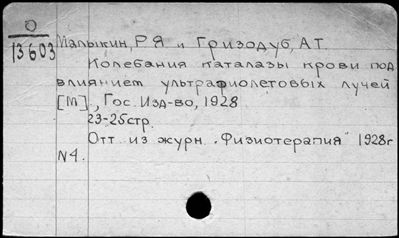 О
13603
Малыкин, Р Я и Гризодуб, А Т.
Колебания каталазы крови под
влиянием ультрафиолетовых лучей
[М]., Гос. Изд-во, 1928
23-25стр.
Отт. из журн. „Физиотерапия" 1928г
N4.